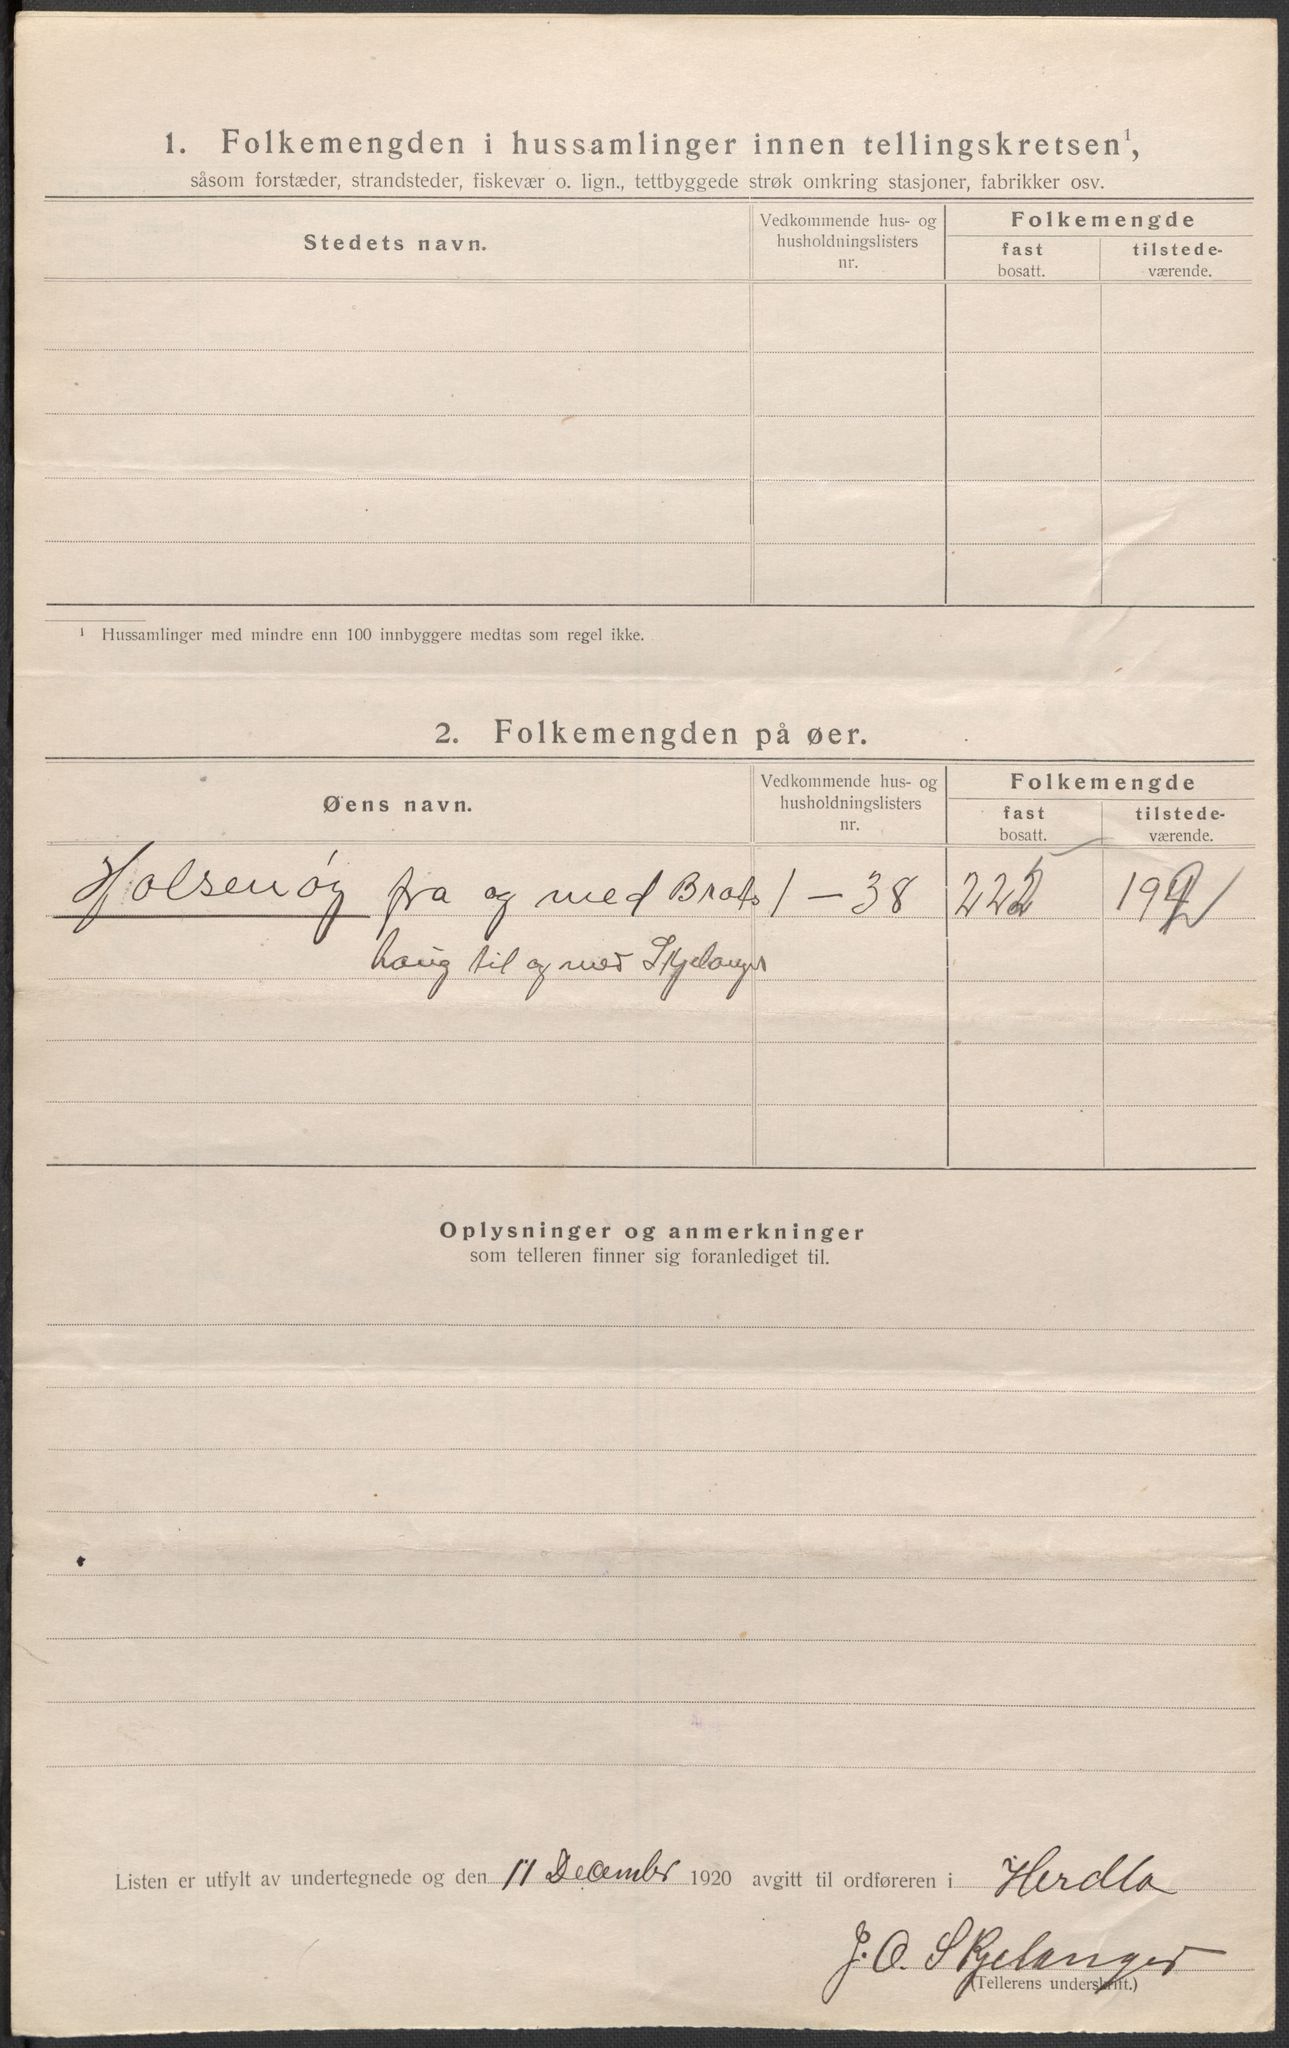 1. Folkemengden i hussamlinger innen tellingskretsen¹,
såsom forstæder, strandsteder, fiskevær o. lign., tettbyggede strøk omkring stasjoner, fabrikker osv.
Stedets navn.
Vedkommende hus- og
husholdningslisters
nr.
Folkemengde
fast
bosatt.
tilstede-
værende.
¹ Hussamlinger med mindre enn 100 innbyggere medtas som regel ikke.
2. Folkemengden på øer.
Øens navn.
Vedkommende hus- og
husholdningslisters
nr.
Folkemengde
fast
bosatt.
tilstede-
værende.
Holsenøy fra og med Brats 1 – 38 225 192
haug til og med Skjelanger
Oplysninger og anmerkninger
som telleren finner sig foranlediget til.
Listen er utfylt av undertegnede og den 11 December 1920 avgitt til ordføreren i Herdla
J. O. Skjelanger
(Tellerens underskrift.)